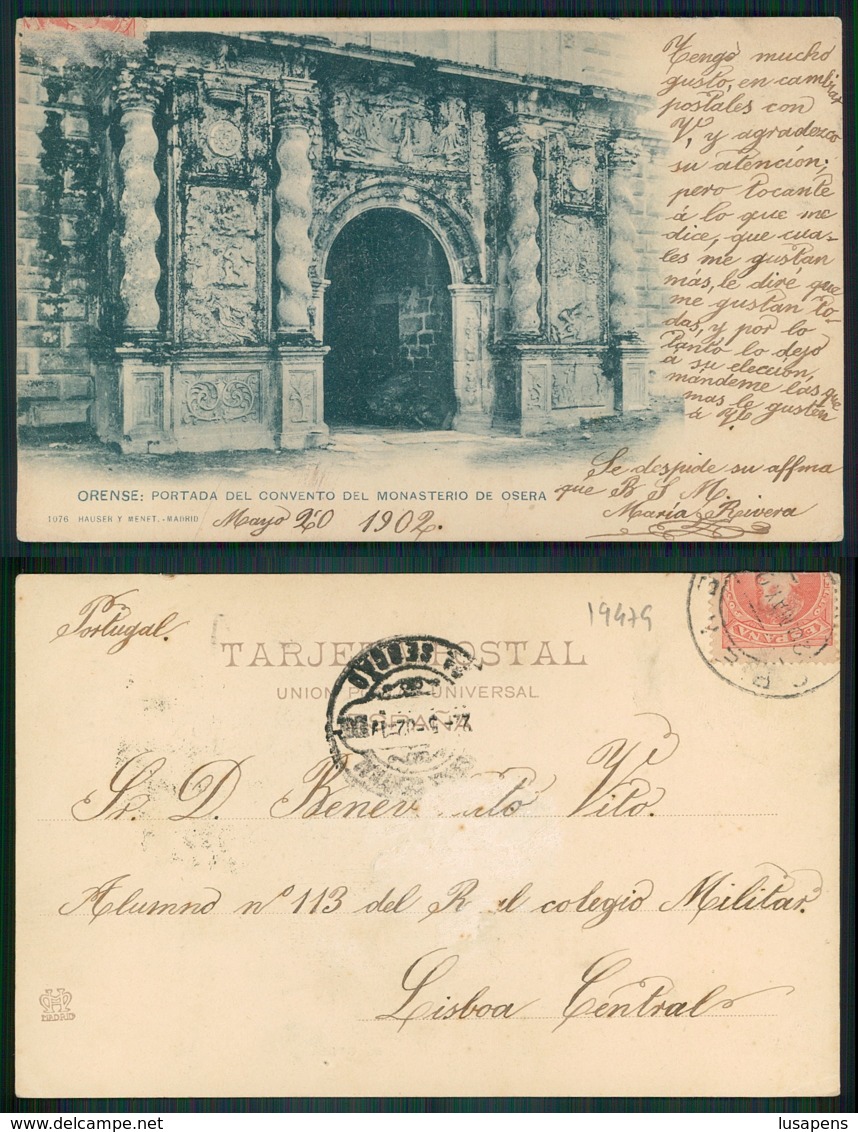 Tengo mucho
gusto, en cambiar
postales con
V, y agradezco
su atención;
pero tocante
á lo que me
dice, que cua-
les me gustan
más, le diré que
me gustan to-
das, y por lo
tanto lo dejo
a su elección,
mándeme las que
mas le gusten
a V.
Se despide su affma
que B S M.
María Rivera
ORENSE: PORTADA DEL CONVENTO DEL MONASTERIO DE OSERA
1076 HAUSER Y MENET.-MADRID
Mayo 20 1902.
Portugal
19479
TARJETA POSTAL
UNION POSTAL UNIVERSAL
ESPAÑA
Sr. D. Benev to Vito.
Alumno nº 113 del R al colegio Militar.
Lisboa Central
MADRID
ESPAÑA
lusapens